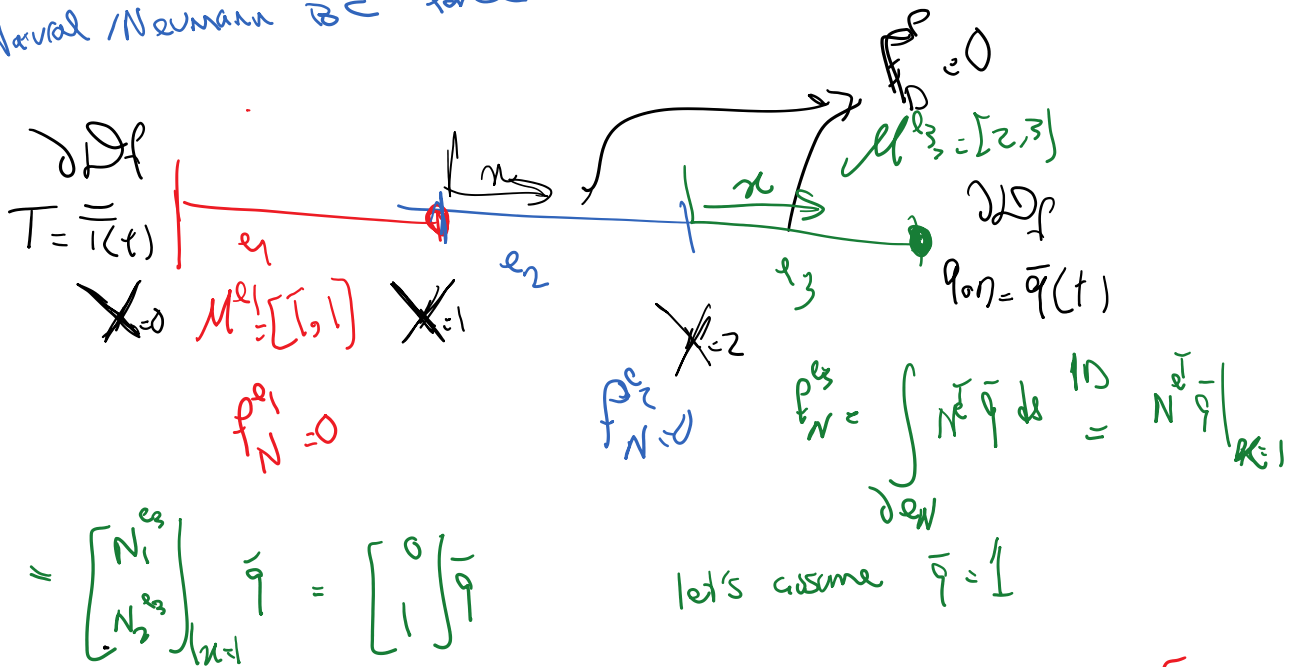 Natural / Neumann BC
f_D = 0
M^{e_3} = [2, 3]
∂D_f
T = T̄(t)
x
x
∂D_f
e_1
e_2
e_3
q.n = q̄(t)
X=0
M^{e_1} = [1̄, 1]
X=1
X=2
f_N^{e_1} = 0
f_N^{e_2} = 0
f_N^{e_3} = ∫_{∂e_N} N^{e^T} q̄ ds =^{1D} N^{e^T} q̄ |_{x=1}
= [N_1^{e_3} N_2^{e_3}] |_{x=1} q̄ = [0 1] q̄
let's assume q̄ = 1